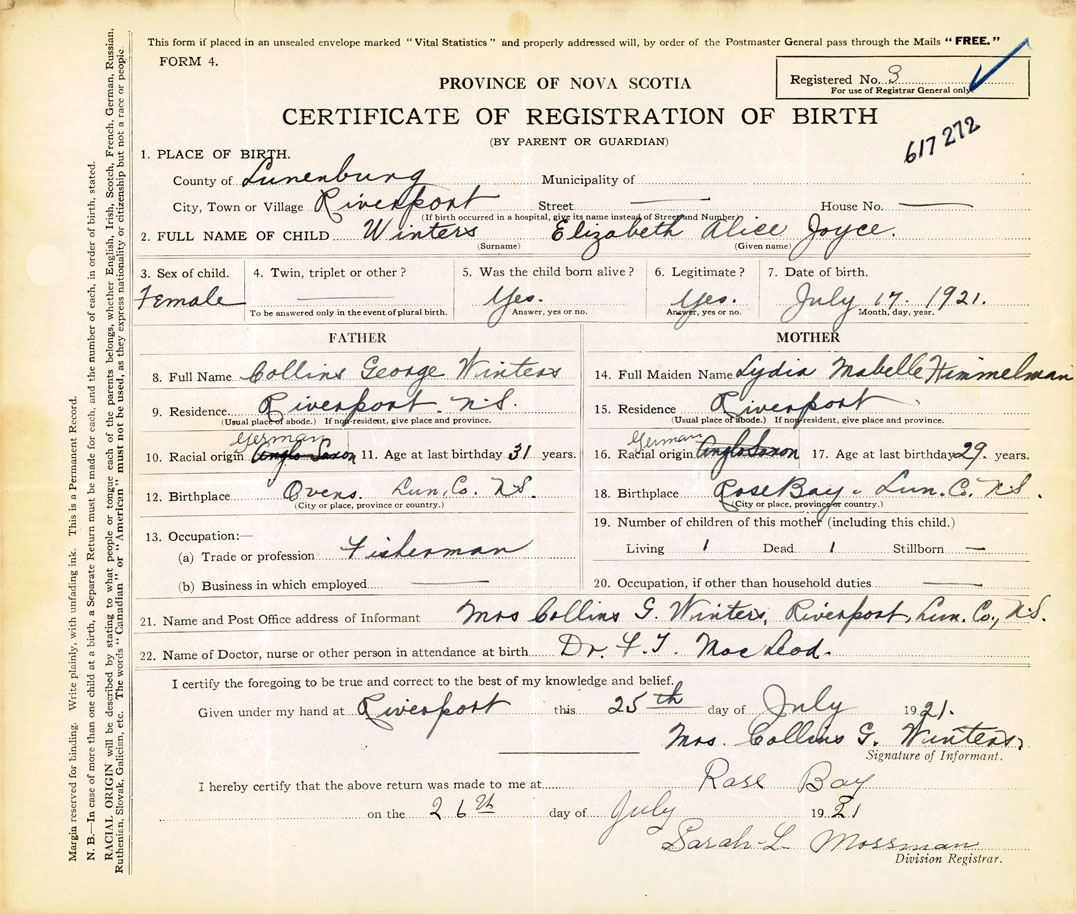 This form if placed in an unsealed envelope marked "Vital Statistics" and properly addressed will, by order of the Postmaster General pass through the Mails "FREE."
FORM 4.
Registered No. 3
For use of Registrar General only.
PROVINCE OF NOVA SCOTIA
CERTIFICATE OF REGISTRATION OF BIRTH
617272
(BY PARENT OR GUARDIAN)
1. PLACE OF BIRTH.
County of Lunenburg Municipality of
City, Town or Village Riverport Street — House No. —
(If birth occurred in a hospital, give its name instead of Street and Number)
2. FULL NAME OF CHILD Winters Elizabeth Alice Joyce.
(Surname) (Given name)
3. Sex of child. 4. Twin, triplet or other? 5. Was the child born alive? 6. Legitimate? 7. Date of birth.
Female — Yes. Yes. July 17. 1921.
To be answered only in the event of plural birth. Answer, yes or no. Answer, yes or no. Month, day, year.
FATHER
8. Full Name Collins George Winters
9. Residence Riverport. N.S.
(Usual place of abode.) If non-resident, give place and province.
German
10. Racial origin Anglo Saxon 11. Age at last birthday 31 years.
12. Birthplace Ovens. Lun. Co. N.S.
(City or place, province or country.)
13. Occupation:—
(a) Trade or profession Fisherman
(b) Business in which employed —
MOTHER
14. Full Maiden Name Lydia Mabelle Himmelman
15. Residence Riverport
(Usual place of abode.) If non-resident, give place and province.
German
16. Racial origin Anglo Saxon 17. Age at last birthday 29. years.
18. Birthplace Rose Bay. Lun. C. N.S.
(City or place, province or country.)
19. Number of children of this mother (including this child.)
Living 1 Dead 1 Stillborn —
20. Occupation, if other than household duties —
21. Name and Post Office address of Informant Mrs Collins G. Winters, Riverport, Lun. Co., N.S.
22. Name of Doctor, nurse or other person in attendance at birth Dr. F. T. MacLeod.
I certify the foregoing to be true and correct to the best of my knowledge and belief.
Given under my hand at Riverport this 25th day of July 1921.
Mrs. Collins G. Winters,
Signature of Informant.
I hereby certify that the above return was made to me at Rose Bay
on the 26th day of July 1921
Sarah L. Mossman
Division Registrar.
Margin reserved for binding. Write plainly, with unfading ink. This is a Permanent Record.
N. B.—In case of more than one child at a birth, a Separate Return must be made for each, and the number of each, in order of birth, stated.
RACIAL ORIGIN will be described by stating to what people or tongue each of the parents belongs, whether English, Irish, Scotch, French, German, Russian,
Ruthenian, Slovak, Galician, etc. The words "Canadian" or "American" must not be used, as they express nationality or citizenship but not a race or people.